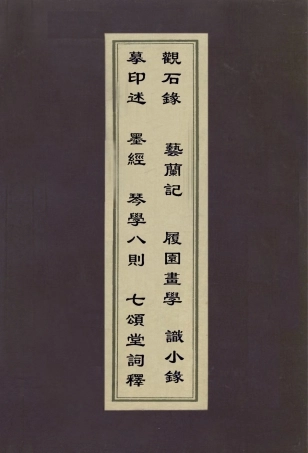 觀石錄　藝蘭記　履園畫學　識小錄
摹印述　墨經　琴學八則　七頌堂詞釋